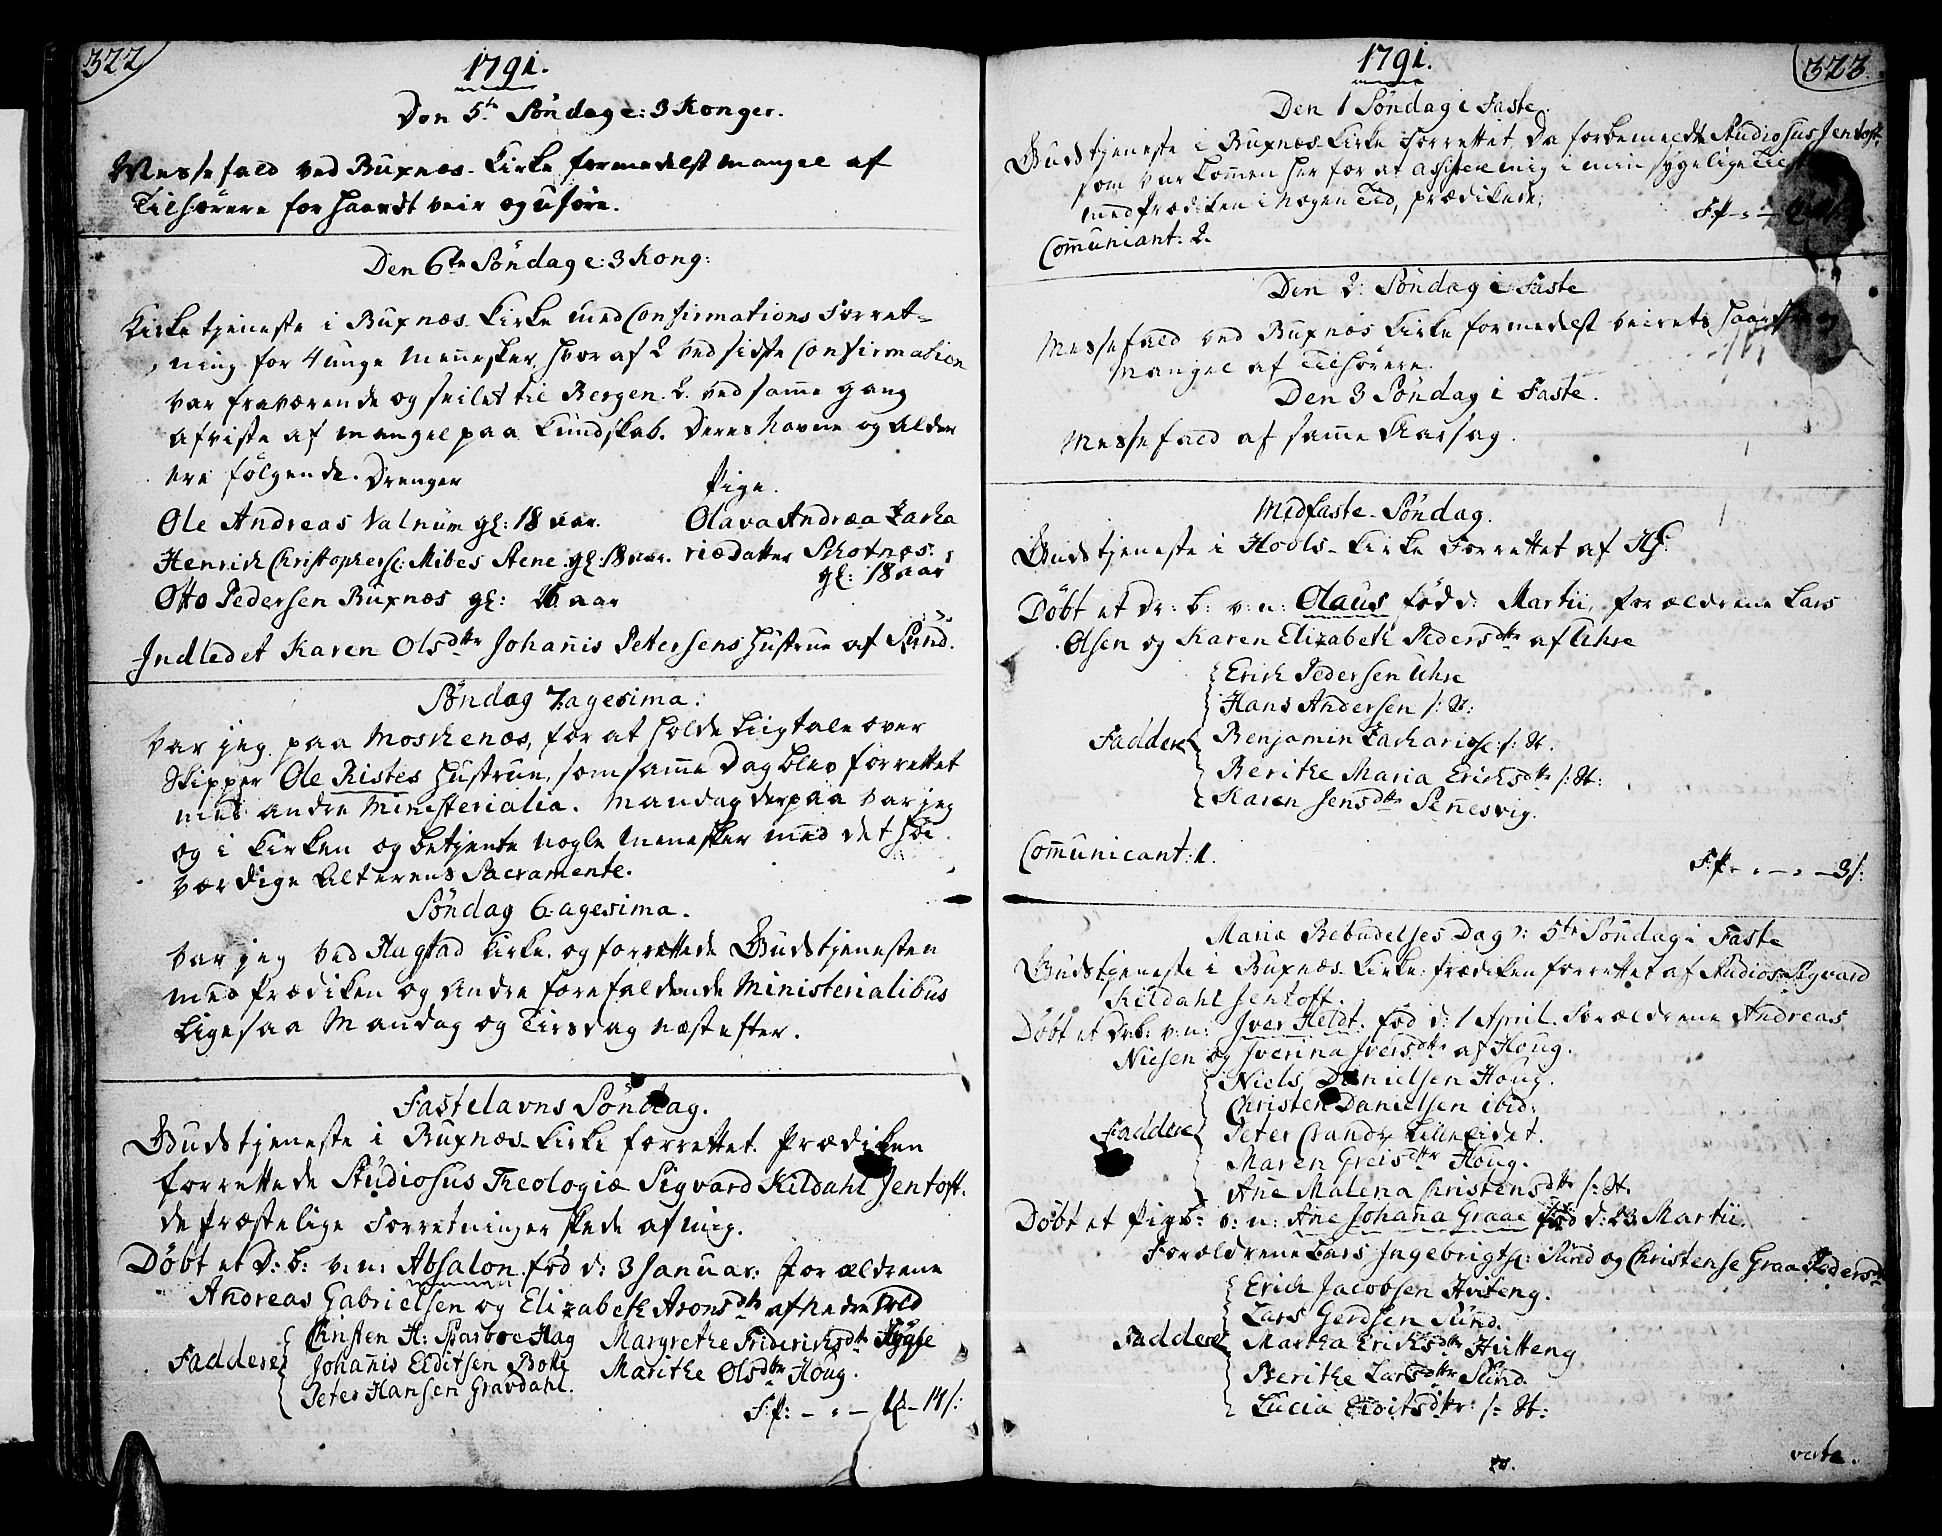 322
1791.
Den 5te Söndag e: 3 Konger.
Messefald ved Buxnæs Kirke formedelst mangel af
Tilhörere for haardt veir og uföre.
Den 6te Söndag e: 3 Kong:
Kirketjeneste i Buxnæs Kirke med Confirmations Forret=
ning for 4 unge Menesker, hvoraf 2 ved sidste Confirmation
var fraværende og seilet til Bergen. 2 ved samme gang
afviste af mangel paa Kundskab. Deres Navne og Alder
ere fölgende. Drenger
Pige.
Ole Andreas Valnum gl: 18 aar.
Olava Andræa Zacha
Henrich Christophersen: Mibes Stene gl: 18 aar.
riædatter Skotnæs:
gl: 18 aar
Otto Pedersen Buxnæs gl: 16 aar
Indledet Karen Olsdttr Johannis Petersens Hustrue af Sund.
Söndag 7agesima:
Var jeg paa Moskenæs, for at holde Liigtale over
Skipper Ole Ristes Hustrue, som samme Dag blev forrettet
med andre Ministerialia. Mandag derpaa var jeg
og i Kirken og betjente nogle Menesker med det höi
værdige Alterens Sacramente.
Söndag 6agesima.
Var jeg ved Flagstad Kirke og forrettede Gudstjenesten
med Prædiken og Andre forefaldende Ministerialibus
Ligesaa Mandag og Tirsdag næstefter.
Fastelavns Söndag.
Gudstjeneste i Buxnæs Kirke forrettet. Prædiken
forrettede Studiosus Theologiæ Sigvard Kildahl Jentoft.
de Præstelige Forretninger skede af mig.
Döbt et D: b: v: n: Absalon föd d: 3 Januar: Forældrene
Andreas Gabrielsen og Elizabeth Aronsdtr af Nedre Vold
Christen H: Sparboe Hag Margrethe Friderichsdtr Hygge
Faddere Johannis Elditsen Bohe Marithe Olsdttr Houg.
Peter Hansen Gravdahl.
F:p: - " - 14 s:
1791.
323
Den 1 Söndag i Faste.
Gudstjeneste i Buxnæs Kirke Forrettet, Da forbemeldte Studiosus Jentoft
som var kommen her for at assistere mig i min sygelige
med Prædiken i nogen Tid, prædikede;
F:p - " -
Communicant: 2.
Den 2: Söndag i Faste
Messefald ved Buxnæs Kirke formedelst veirets og
Mangel af Tilhörere.
Den 3 Söndag i Faste.
Messefald af samme Aarsag.
Midfaste-Söndag.
Gudstjeneste i Hools-Kirke Forrettet af
Döbt et Dr: b: v: n: Olaus född: Martii, forældrene Lars
Olsen og Karen Elizabeth Pedersdtr af Uhre
Erich Pedersen Uhre
Hans Andersen s: St:
Faddere Benjamin Zachariæs: s: St.
Berithe Maria Erichsdtr s: St:
Karen Jensdtr Sennesvig.
Communicant: 1.
F:p - " - " - 3 s:
Mariæ Bebudelses Dag : 5te Söndag i Faste
Gudstjeneste i Buxnæs Kirke, Prædiken forrettet af Studiosus Sigvard
Kildahl Jentoft.
Döbt et Drb: v: n: Iver Heldt. föd d: 1 April. Forældrene Andreas
Nielsen og Iverina Iversdtr af Houg.
Niels Danielsen Houg.
Christen Danielsen ibid:
Faddere Peter Lilleeidet.
Maren Greisdttr Houg.
Ane Malena Christensdtr s: St.
Döbt et Pigb: v: n: Ane Johanna Graae föd d: 23 Martii.
Forældrene Lars Ingebrigtsen: Sund og Christense Graa Pedersd:
Erich Jacobsen Hutteng.
Lars Gerdsen Sund.
Faddere Martha Erichsdtr Hutteng
Berithe Larsdttr Sund.
Lucia Elditsdtr: s: St:
verte.